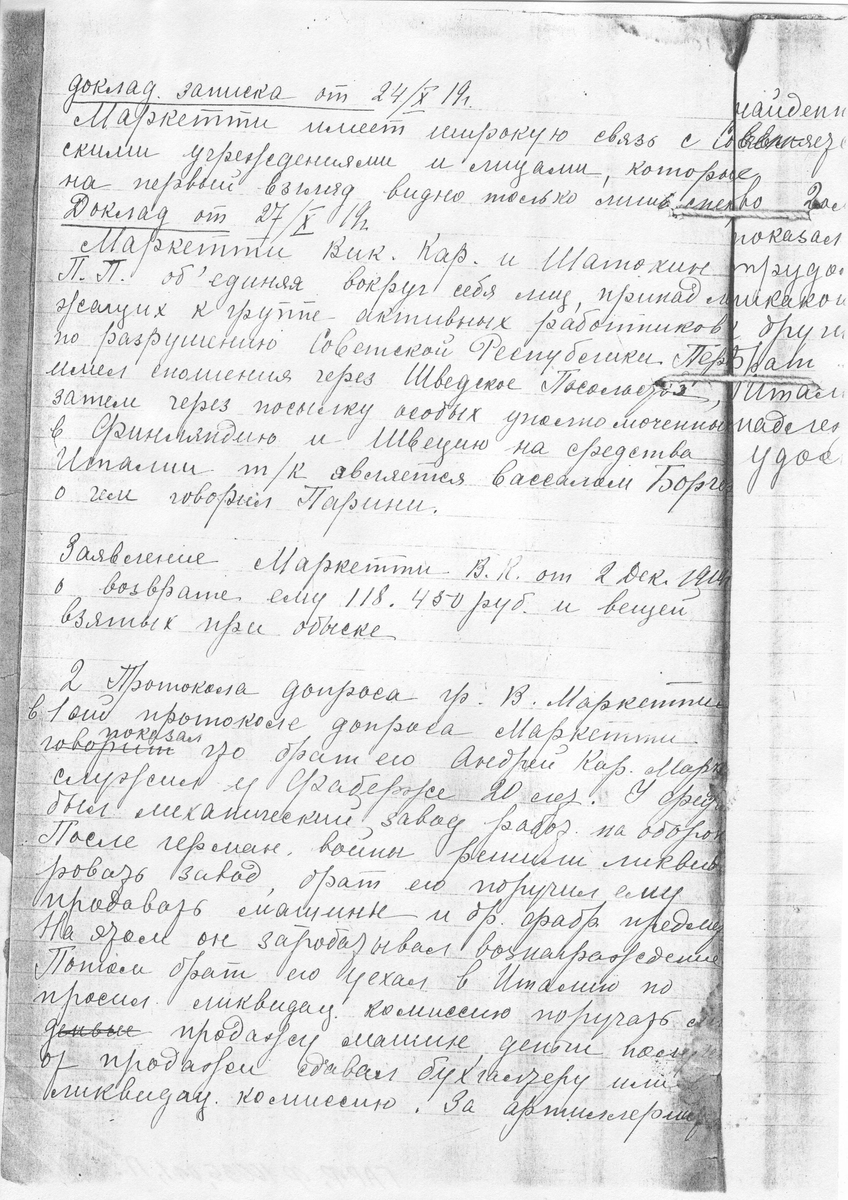 доклад. записка от 24/X 19г.
Маркетти имеет широкую связь с Совет
скими учреждениями и лицами, которые
на первый взгляд видно только лишь
Доклад от 27/X 19г.
Маркетти Вик. Кар. и Шатохин
П.П. об'единяя вокруг себя лиц, принад
жащих к группе активных работников
по разрушению Советской Республики.
имел сношения через Шведское Посольство,
затем через посылку особых уполномоченных
в Финляндию и Швецию на средства
Италии т/к является вассалом
о чем говорил Парини.
Заявление Маркетти В.К. от 2 Дек. 1919г
о возврате ему 118.450 руб. и вещей
взятых при обыске
2 Протокола допроса гр. В. Маркетти
в 1ом протоколе допроса Маркетти
показал
говорит что брат его Андрей Кар. Марк
служил у Фаберже 20 лет. У
был механический завод работ. на оборон
После герман. войны решили ликвиди
ровать завод, брат его поручил ему
продавать машины и др. фабр. предме
На этом он заробатывал вознаграждение
Потом брат его уехал в Италию но
просил ликвидац. комиссию поручать
продажу машин деньги
от продажи сдавал бухгалтеру или
ликвидац. комиссию. За
найденн
2
показал
трудо
никакой
други
брат
Итал
надле
удос